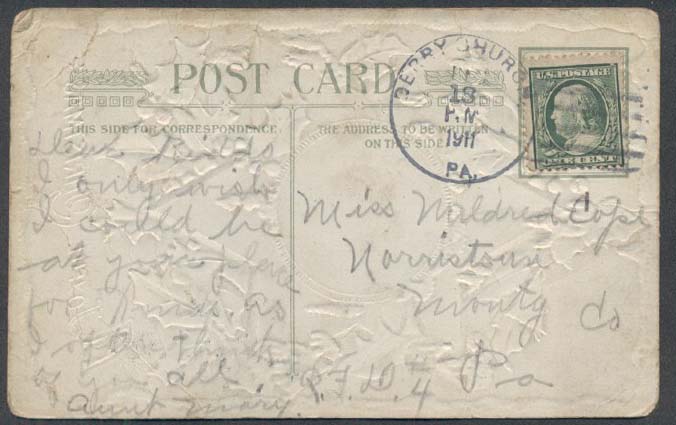 POST CARD
THIS SIDE FOR CORRESPONDENCE.
THE ADDRESS TO BE WRITTEN
ON THIS SIDE
DERRY CHURCH
18
P.M.
1911
PA.
U.S. POSTAGE
ONE CENT
Dear
I only wish
I could be
at your place
for as
I often think
of you all
Aunt Mary.
Miss Mildred Cope
Norristown
Monty Co
R.F.D. #4 Pa